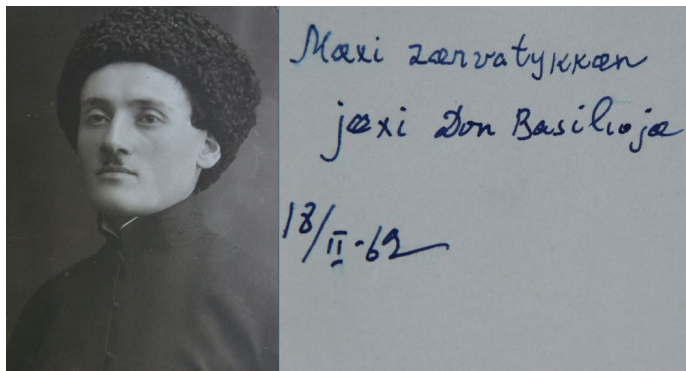 Mæxi zærvatykkæn
jæxi Don Basilioja
18/II-62